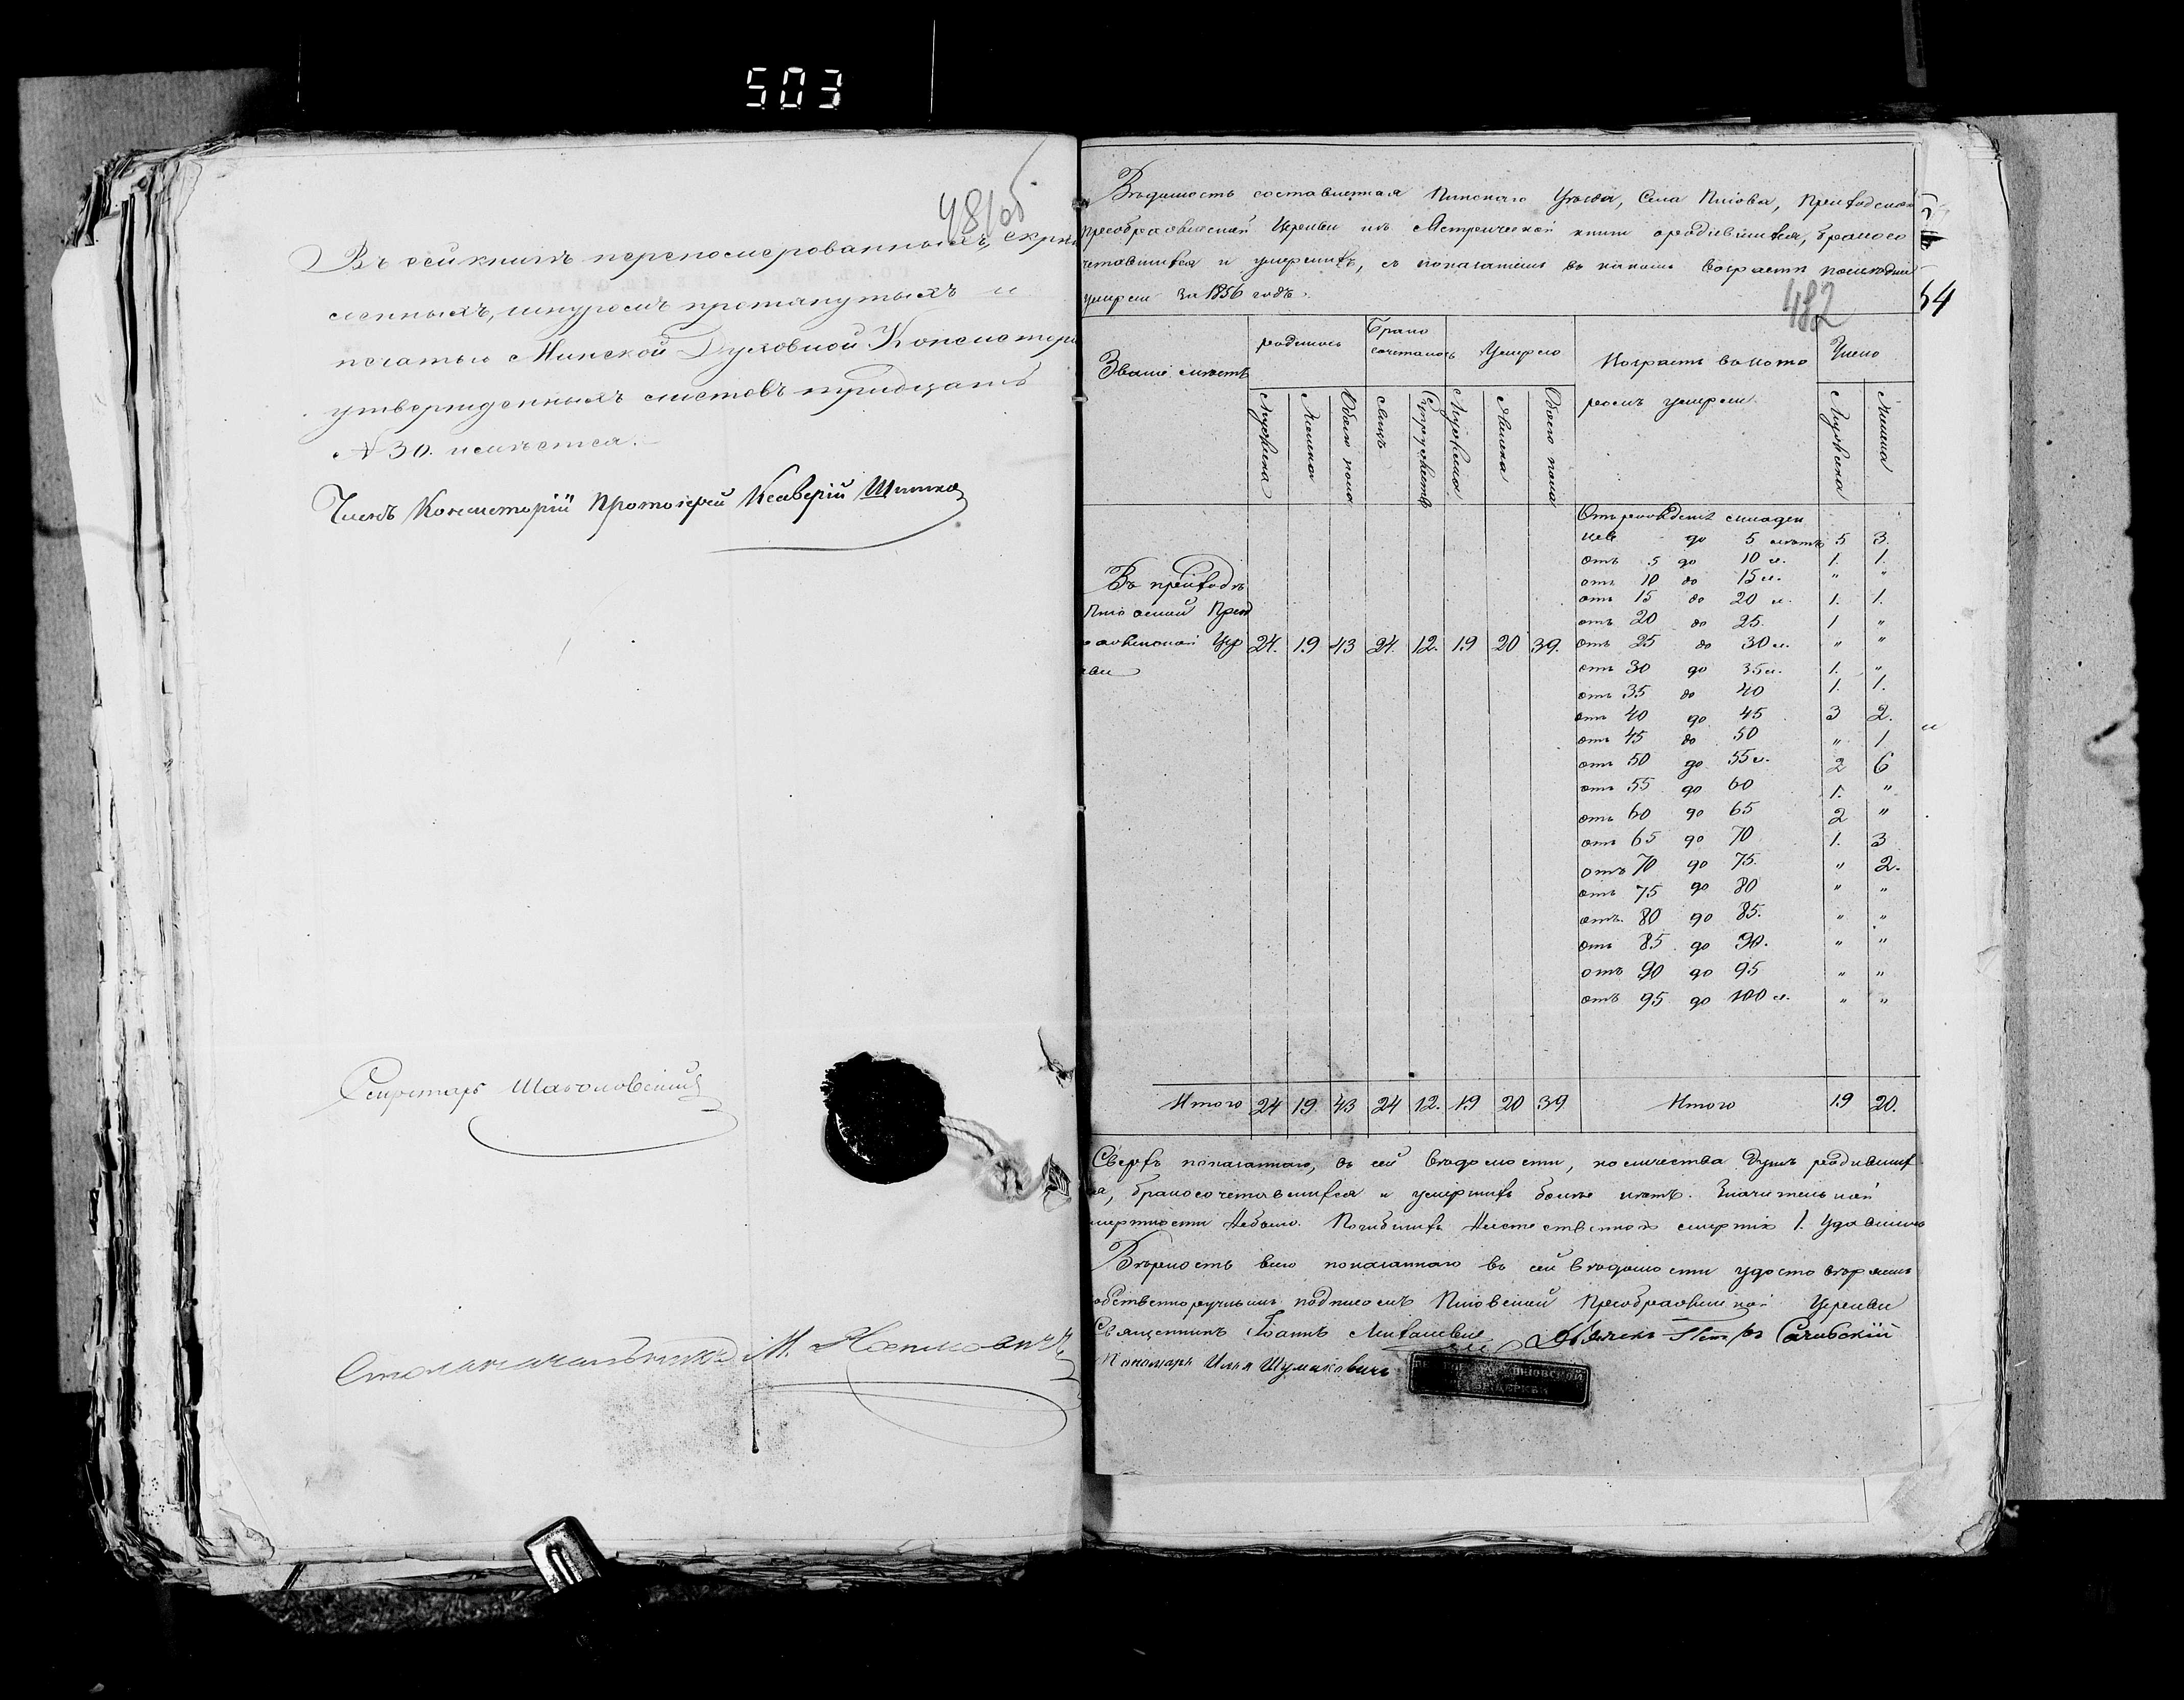 503
481об
Въ сей книгѣ перенумерованныхъ, скрѣп
ленныхъ, шнуромъ протянутыхъ и
печатью Минской Духовной Консисторіи
утвержденныхъ листовъ тридцать
№ 30. имѣется.
Членъ Консисторіи Протоіерей Ксаверій
Секретарь
Столоначальникъ М.
Вѣдомость составленная Пинскаго Уѣзда, Села, Приходской
Преображенской Церкви изъ Метрической книги о родившихся, бракосо
четавшихся и умершихъ, съ показаніемъ въ какомъ возрастѣ
умерли за 1856 годъ.
482
54
Званіе мѣстъ
родилось
Брако
сочеталось
Умерло
Возрастъ въ кото
ромъ умерли.
Число
Мужеска
Женска
Обоего пола
Лицъ
Супружествъ
Мужеска
Женска
Обоего пола
Мужеска
Женска
Отъ рожденія младен
цевъ до 5 лѣтъ 5 3.
отъ 5 до 10 л. 1. 1.
отъ 10 до 15 л. " "
отъ 15 до 20 л. 1. 1.
отъ 20 до 25. 1 "
отъ 25 до 30 л. " "
отъ 30 до 35 л. 1. "
отъ 35 до 40 1. 1.
отъ 40 до 45 3 2.
отъ 45 до 50 " 1
отъ 50 до 55 л. 2 6
отъ 55 до 60 1. "
отъ 60 до 65 2 "
отъ 65 до 70 1. 3
отъ 70 до 75. " 2.
отъ 75 до 80 " "
отъ 80 до 85. " "
отъ 85 до 90. " "
отъ 90 до 95 " "
отъ 95 до 100 л. " "
Въ приходѣ
24. 19 43 24. 12. 19 20 39.
Итого 24 19. 43 24 12. 19 20 39 Итого 19 20.
Сверхъ показаннаго, въ сей вѣдомости, количества душъ родивших
ся, бракосочетавшихся и умершихъ болѣе нѣтъ. Значительной
смертности небыло. Погибшихъ неестественною смертію 1.
Вѣрность всего показаннаго въ сей вѣдомости удостовѣряемъ
собственноручнымъ подписомъ Преображенской Церкви
Священникъ Іоаннъ
Пономарь Илья Шумаковичъ